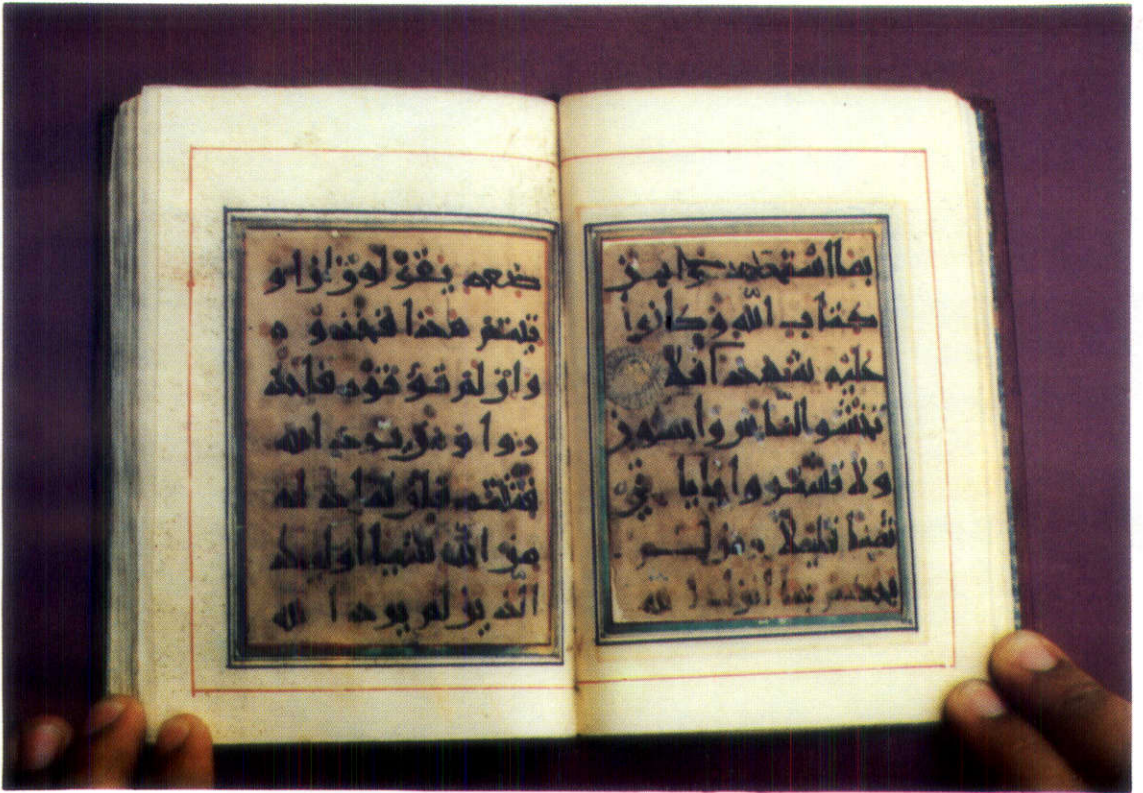 بما استحفظوا من
كتاب الله وكانوا
عليه شهدا فلا
تخشوا الناس واخشون
ولا تشتروا بايا تي
ثمنا قليلا ومن لم
يحكم بما انزل الله
ضعه يقولون ان او
تيتم هذا فخذوه
وان لم توتوه فاحذ
روا ومن يرد الله
فتنته فلن تملك له
من الله شيا اوليك
الذين لم يرد الله